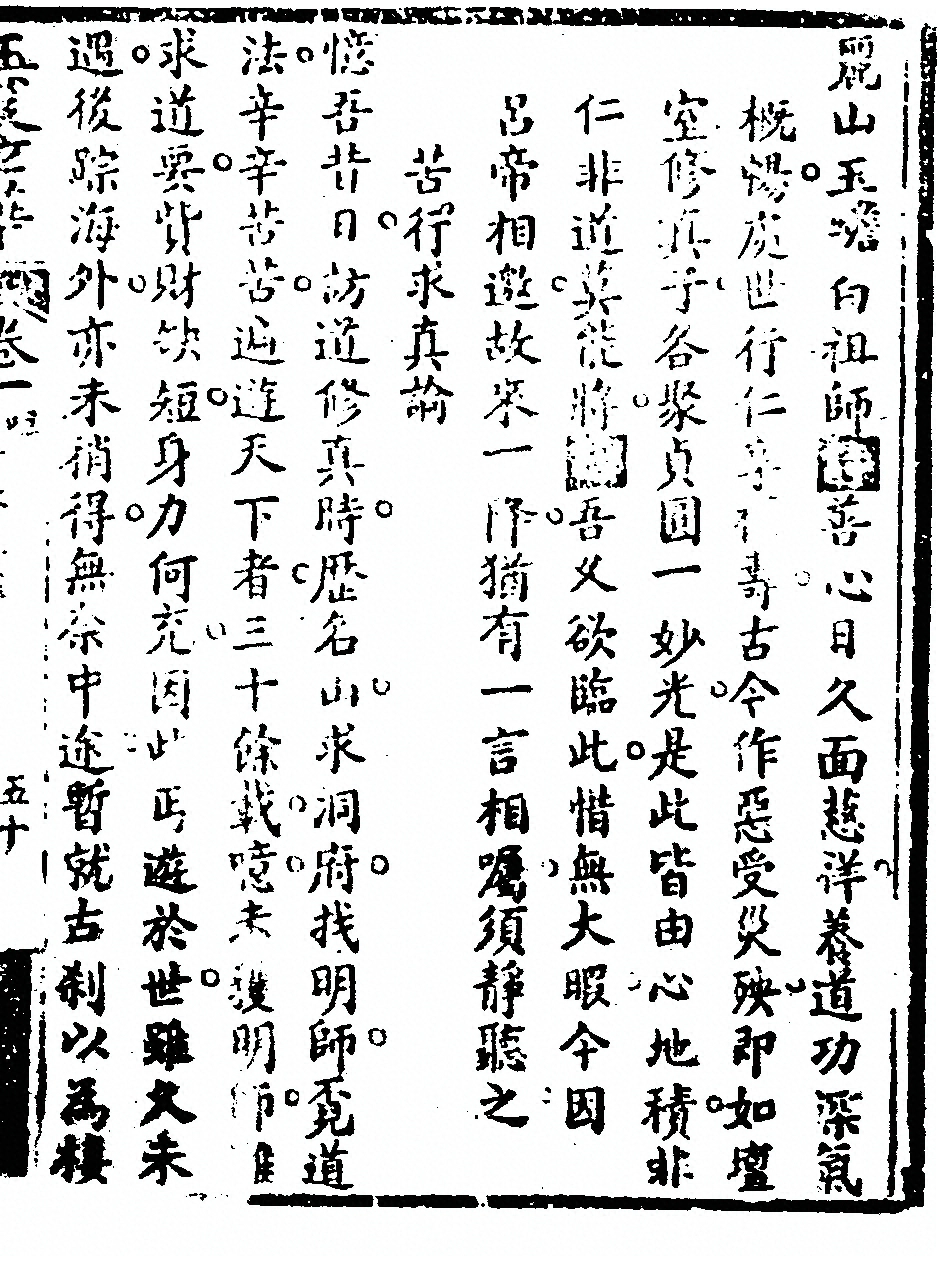 麗山玉蟾白祖師善心日久面慈祥養道功深氣
概暢處世行仁享福壽古今作惡受災殃即如壇
室修真子各聚貞圓一妙光是此皆由心地積非
仁非道莫能將吾父欲臨此惜無大暇今因
呂帝相邀故來一降猶有一言相囑須靜聽之
苦行求真論
憶吾昔日訪道修真時歷名山求洞府找明師覓道
法辛辛苦苦遍遊天下者三十餘載噫未獲明師惟
求道要貲財缺短身力何充因此丐遊於世雖久未
過後踪海外亦未稍得無奈中途暫就古刹以為棲
卷一
五十